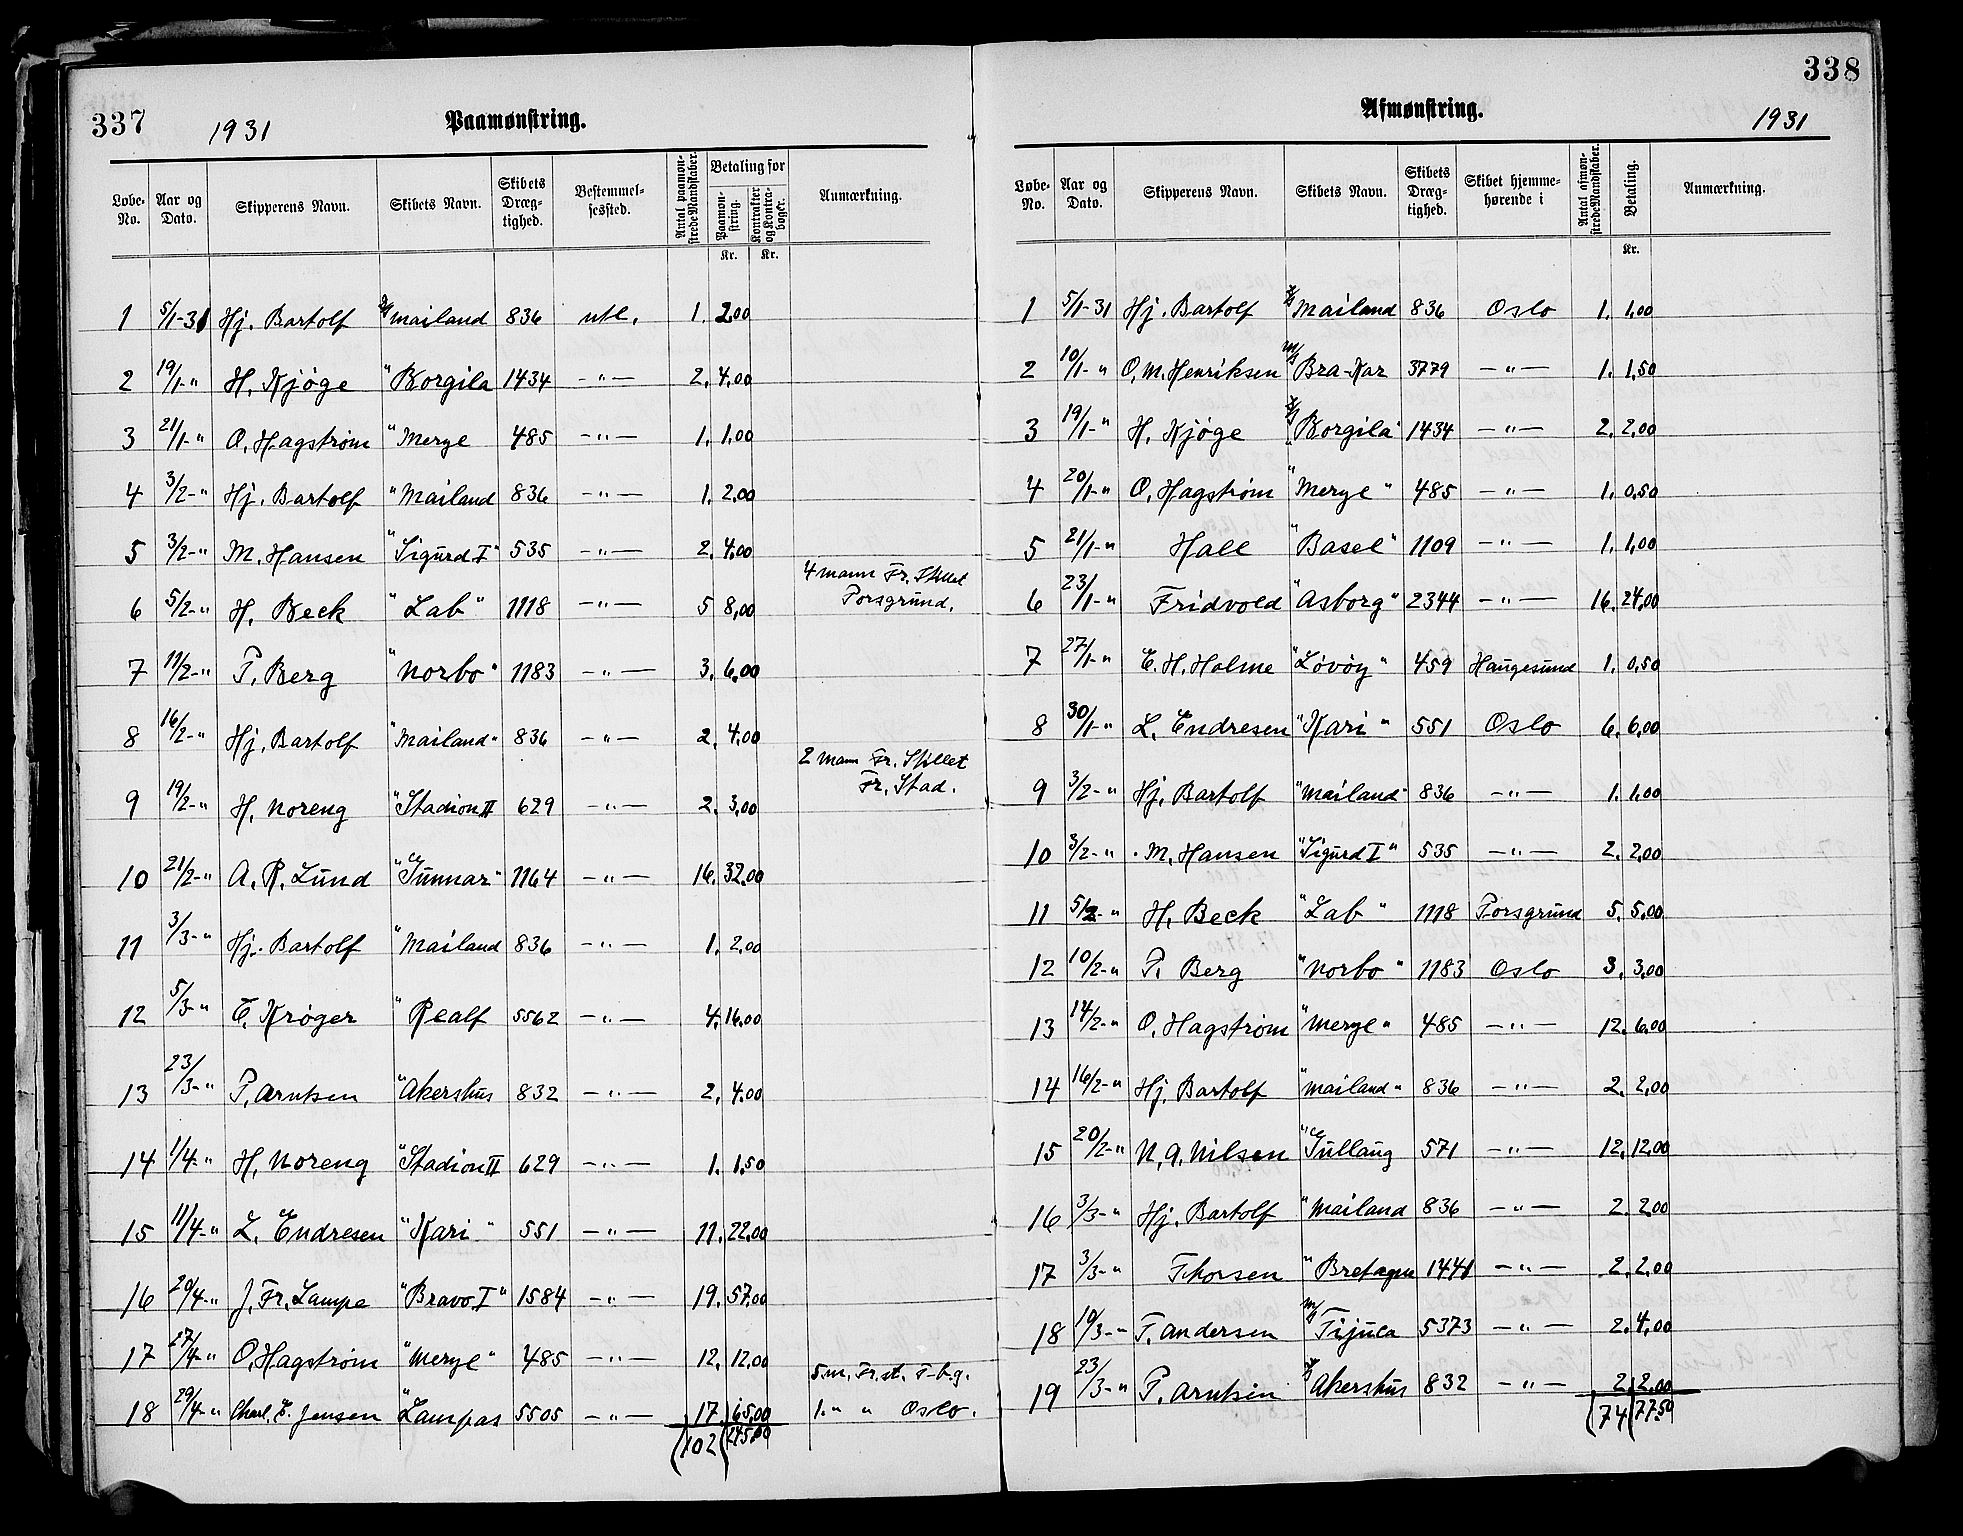 337
1931 Paamønstring.
Løbe-No. Aar og Dato. Skipperens Navn. Skibets Navn. Skibets Dræg-tighed. Bestemmel-sessted. Antal paamøn-strede Mandskaber. Betaling for Paamøn-string. Kontrakter og Kontra-bøger. Anmærkning.
Kr. Kr.
1 5/1-31 Hj. Bartolf D/S Mailand 836 utl. 1. 2.00
2 19/1-" H. Kjøge " Borgila 1434 -"- 2. 4.00
3 21/1-" O. Hagstrøm " Merye 485 -"- 1. 1.00
4 3/2-" Hj. Bartolf " Mailand 836 -"- 1. 2.00
5 3/2-" M. Hansen "Sigurd I" 535 -"- 2. 4.00
6 5/2-" H. Beck " Lab " 1118 -"- 5 8,00 4 mann Fr. Stillet Porsgrund.
7 11/2-" P. Berg " Norbo " 1183 -"- 3. 6.00
8 16/2-" Hj. Bartolf "Mailand" 836 -"- 2. 4.00
9 19/2-" H. Noreng "Stadion II 629 -"- 2. 3,00 2 mann Fr. Stillet Fr. Stad.
10 21/2-" A. R. Lund "Gunnar" 1164 -"- 16. 32.00
11 3/3-" Hj. Bartolf " Mailand 836 -"- 1. 2.00
12 5/3-" E. Krøger " Realf 5562 -"- 4. 16.00
13 23/3-" P. Arntsen "Akershus 832 -"- 2. 4.00
14 1/4-" H. Noreng "Stadion II 629 -"- 1. 1.50
15 11/4-" L. Endresen " Kari " 551 -"- 11. 22.00
16 20/4-" J. Fr. Lampe "Bravo I" 1584 -"- 19. 57.00
17 27/4-" O. Hagstrøm " Merye " 485 -"- 12. 12.00
18 29/4-" Charl. E. Jensen " Lampas 5505 -"- 17. 65.00 5 m. Fr. st. T-b-g. 1. " " Oslo.
102 245.00
338
Afmønstring. 1931
Løbe-No. Aar og Dato. Skipperens Navn. Skibets Navn. Skibets Dræg-tighed. Skibet hjemme-hørende i Antal afmøn-strede Mandskaber. Betaling. Anmærkning.
Kr.
1 5/1-31 Hj. Bartolf D/S Mailand 836 Oslo 1. 1.00
2 10/1-" O. M. Henriksen M/S Bra-Kar 3779 -"- 1. 1.50
3 19/1-" H. Kjøge D/S Borgila 1434 -"- 2. 2.00
4 20/1-" O. Hagstrøm " Merye " 485 -"- 1. 0.50
5 21/1-" Hall " Basel " 1109 -"- 1. 1,00
6 23/1-" Fridvold " Asborg " 2344 -"- 16. 24.00
7 27/1-" E. H. Holme " Løvøy " 459 Haugesund 1. 0.50
8 30/1-" L. Endresen " Kari " 551 Oslo 6. 6.00
9 3/2-" Hj. Bartolf " Mailand " 836 -"- 1. 1.00
10 3/2-" M. Hansen "Sigurd I" 535 -"- 2. 2,00
11 5/2-" H. Beck " Lab " 1118 Porsgrund 5. 5.00
12 10/2-" P. Berg " Norbo " 1183 Oslo 3. 3,00
13 14/2-" O. Hagstrøm " Merye " 485 -"- 12. 6.00
14 16/2-" Hj. Bartolf " Mailand " 836 -"- 2. 2.00
15 20/2-" N. A. Nilsen " Gullaug 571 -"- 12. 12.00
16 3/3-" Hj. Bartolf " Mailand 836 -"- 2. 2.00
17 3/3-" Thorsen " Bretagne 1441 -"- 2. 2.00
18 19/3-" T. Andersen M/S Tijuca 5373 -"- 2. 4,00
19 23/3-" P. Arntsen D/S Akershus 832 -"- 2. 2.00
74 77.50